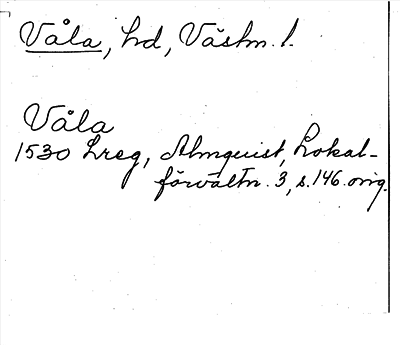 Våla, hd, Västm. l.
Våla
1530 Lreg, Almquist, Lokal-
förvaltn. 3, s. 146. orig.